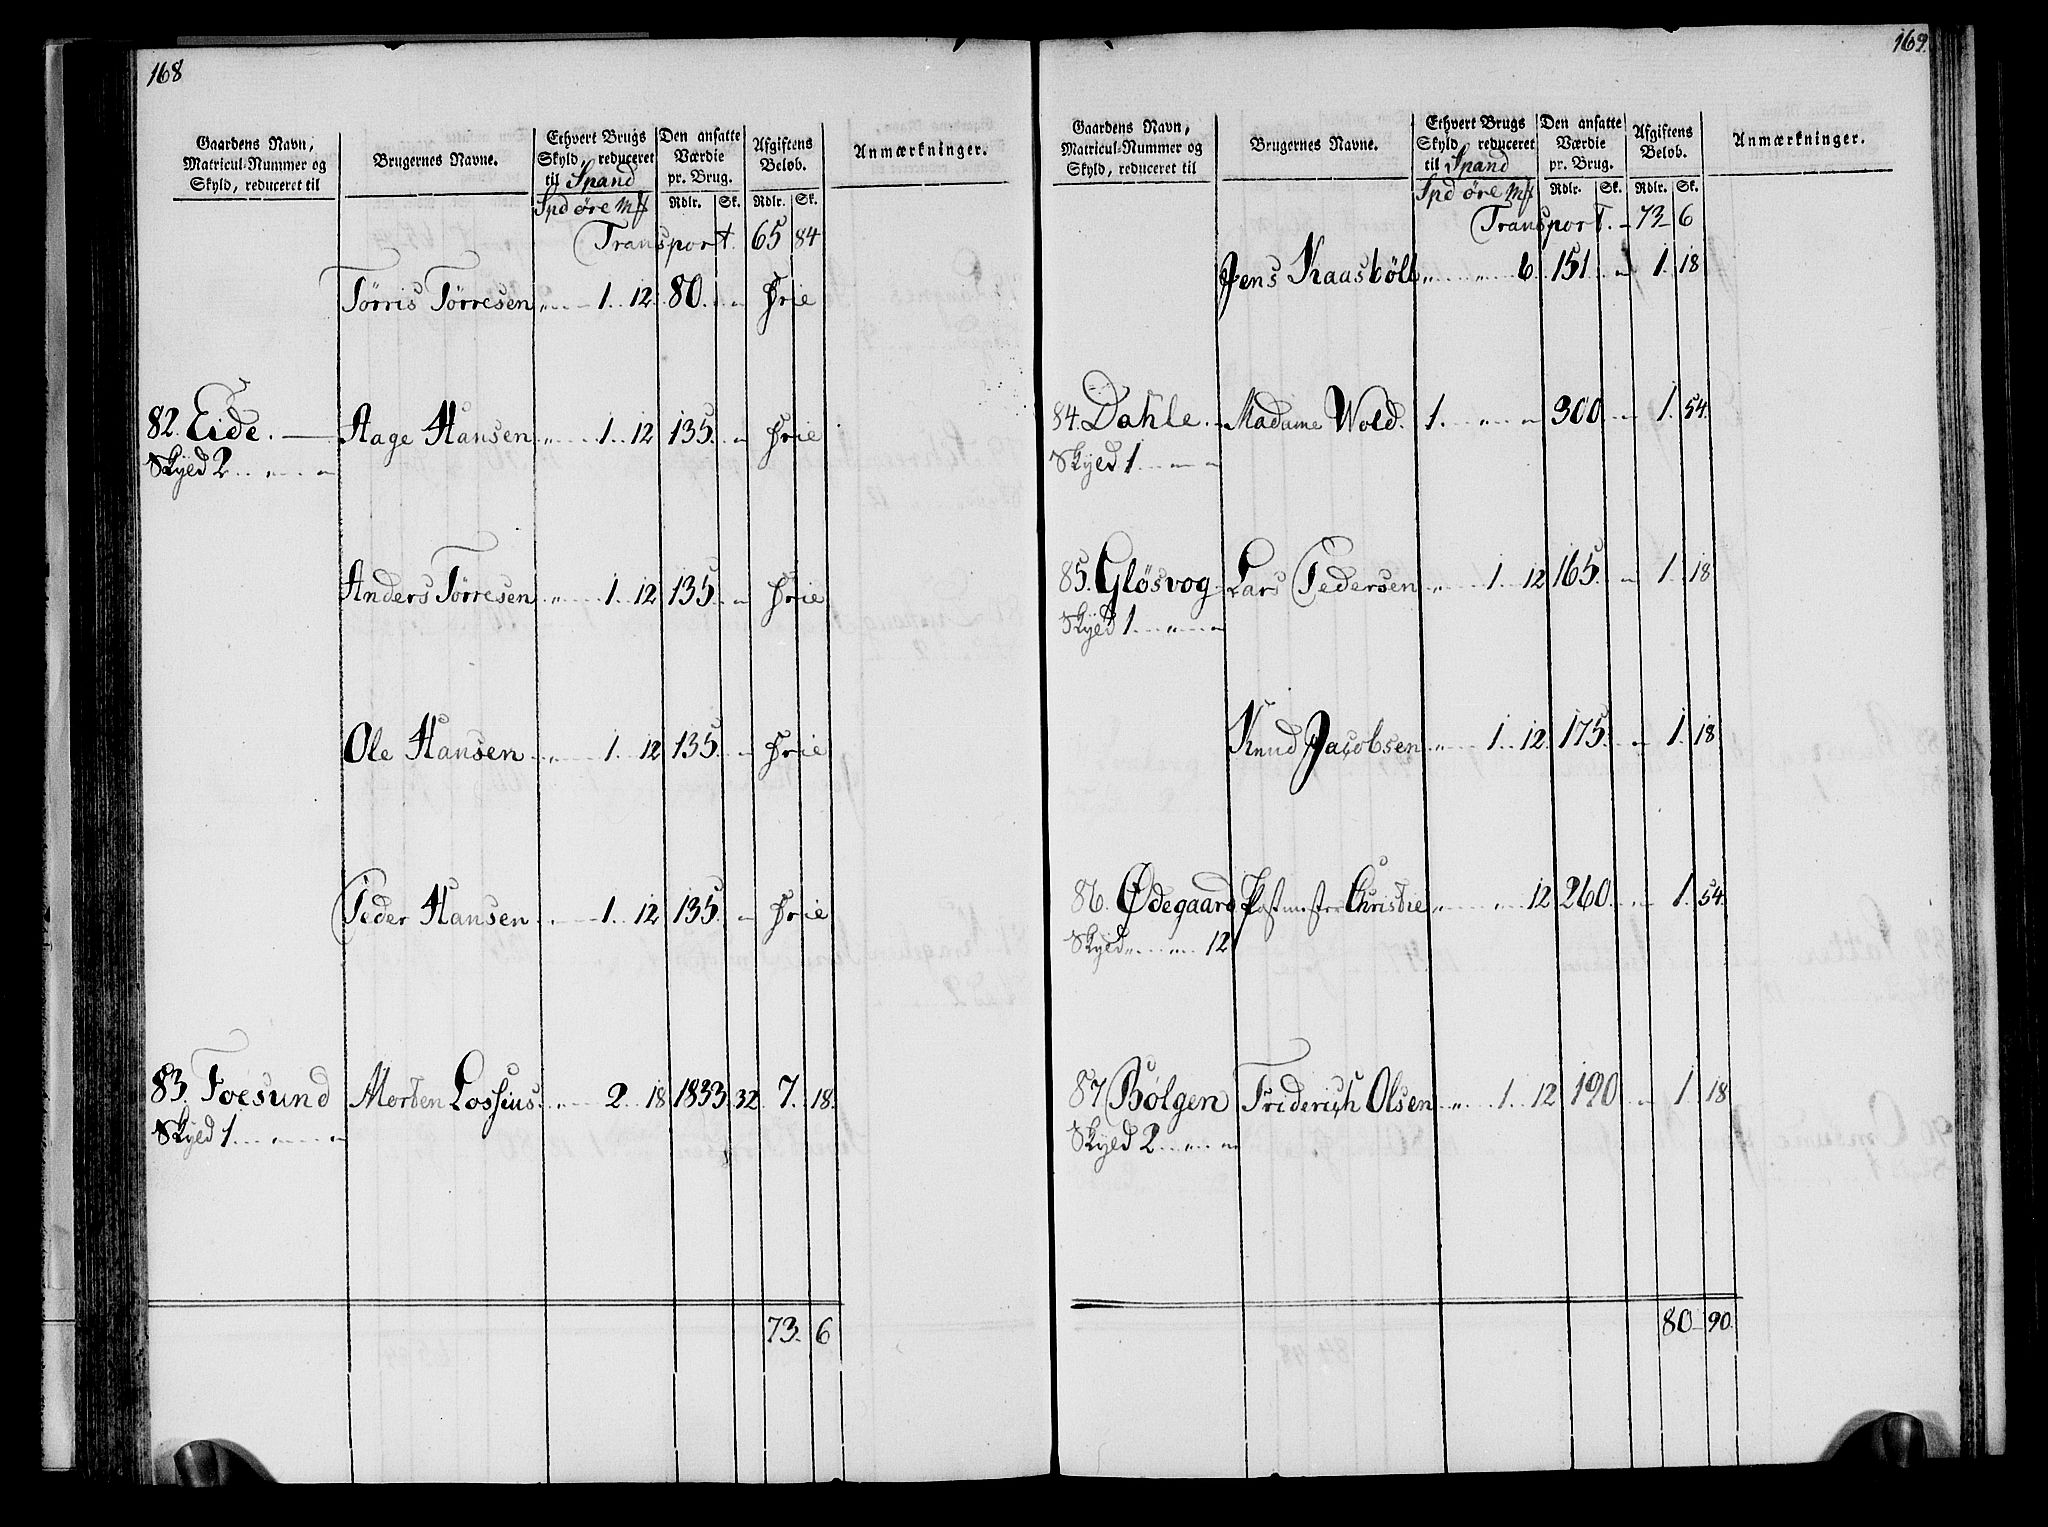 168
Gaardens Navn, Matricul-Nummer og Skyld, reduceret til | Brugernes Navne. | Ethvert Brugs Skyld, reduceret til Spand Spd øre m# | Den ansatte Værdie pr. Brug. Rdlr. Sk. | Afgiftens Beløb. Rdlr. Sk. | Anmærkninger.
Transport. 65 84
Törris Törresen „ 1. 12. 80. „ Frie
82. Eide. Aage Hansen „ 1. 12 135. „ Frie
Skyld 2. „ „
Anders Törresen „ 1. 12 135. „ Frie
Ole Hansen „ 1. 12 135. „ Frie
Peder Hansen „ 1. 12 135. „ Frie
83. Foesund Morten Lossius. „ 2. 18 1833 32 7. 18.
Skyld 1. „ „
73. 6
169.
Gaardens Navn, Matricul-Nummer og Skyld, reduceret til | Brugernes Navne. | Ethvert Brugs Skyld, reduceret til Spand Spd øre m# | Den ansatte Værdie pr. Brug. Rdlr. Sk. | Afgiftens Beløb. Rdlr. Sk. | Anmærkninger.
Transport. 73 6
Jens Kaasböll „ „ 6. 151. „ 1. 18
84. Dahle. Madame Wold. 1. „ „ 300. „ 1. 54.
Skyld 1. „ „
85. Gløsvog Lars Pedersen „ 1. 12 165. „ 1. 18
Skyld 1. „ „
Knud Jacobsen „ 1. 12. 175. „ 1. 18
86. Ødegaard Postmester Christie „ „ 12 260. „ 1. 54.
Skyld „ „ 12
87 Bølgen Friderich Olsen „ 1. 12 190 „ 1 18
Skyld 2. „ „
80 90.